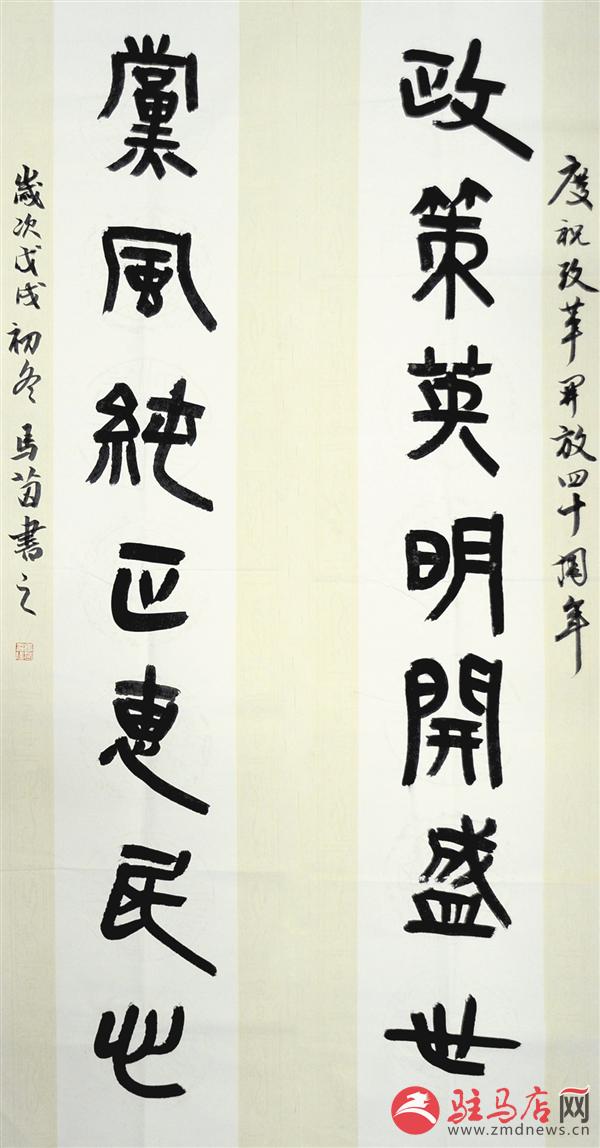 庆祝改革开放四十周年
政策英明開盛世
黨風純正惠民心
歲次戊戌初冬马苗書之
驻马店网
www.zmdnews.cn